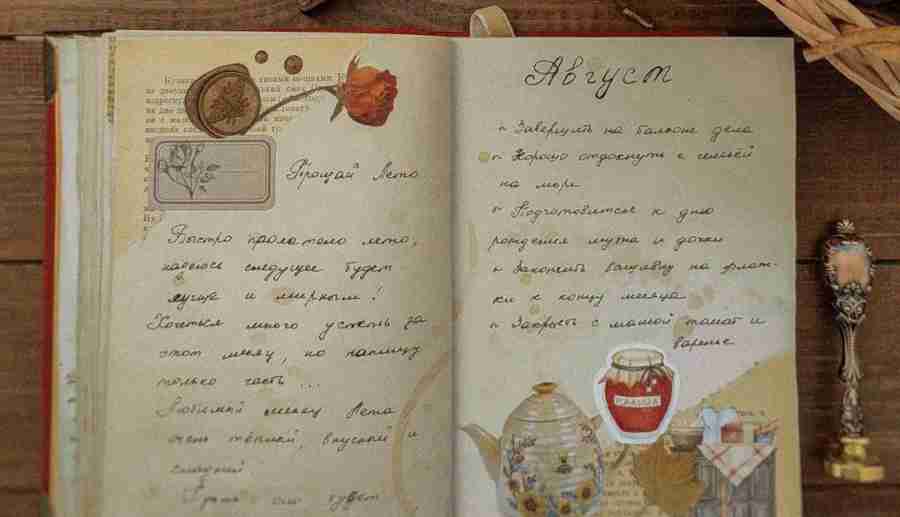 Прощай Лето
Быстро пролетело лето,
надеюсь следущее будет
лучше и мирным!
Хочеться много успеть за
этот месяц, но напишу
только часть ...
Любимый месяц Лета
очень тёплый, вкусный и
будет
Август
Завершить на балконе дела
Хорошо отдохнуть с семьёй
на море
Подготовиться к дню
рождения мужа и дочки
Закончить вышивку на флаж-
ки к концу месяца
Закрыть с мамой томат и
варенье